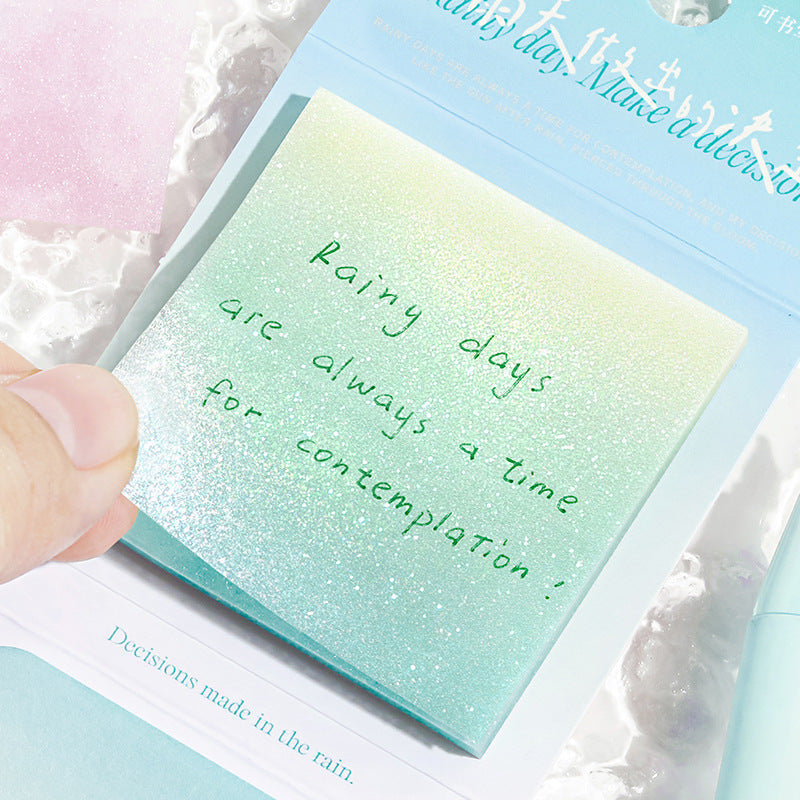 可书
雨天做出的决
Rainy day. Make a decision
RAINY DAYS ARE ALWAYS A TIME FOR CONTEMPLATION, AND MY DECISION
LIKE THE SUN AFTER RAIN, PIERCED THROUGH THE GLOOM.
Rainy days
are always a time
for contemplation!
Decisions made in the rain.